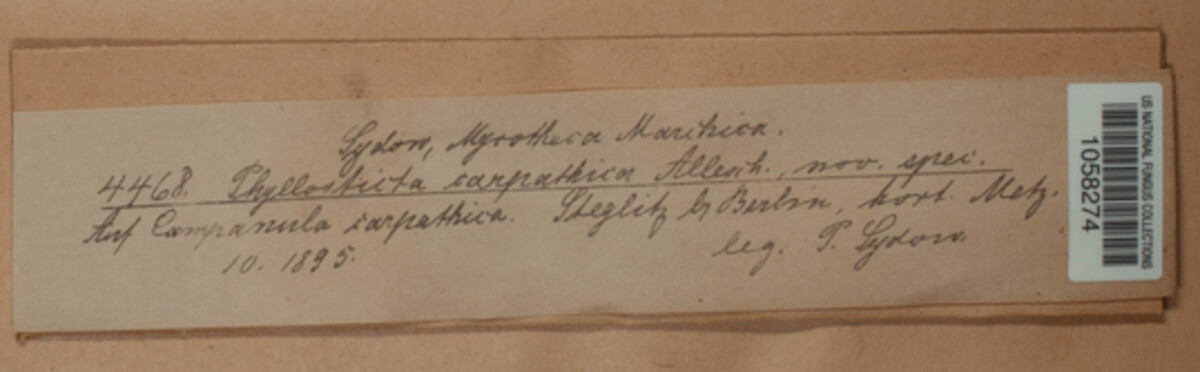 Sydow, Mycotheca Marchica.
4468. Phyllosticta carpathica Allesch., nov. spec.
Auf Campanula carpathica. Steglitz b/ Berlin, hort. Metz.
10. 1895.
leg. P. Sydow.
US NATIONAL FUNGUS COLLECTIONS
1058274